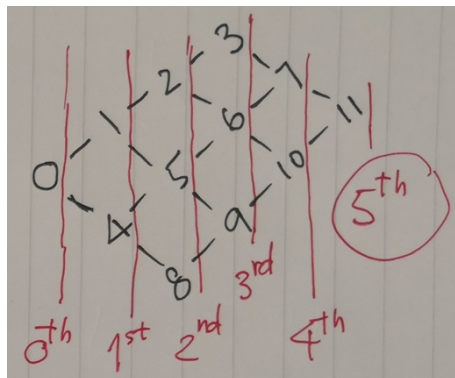 3
2 7
1 6 11
0 5 10
4 9
8
0th 1st 2nd 3rd 4th 5th